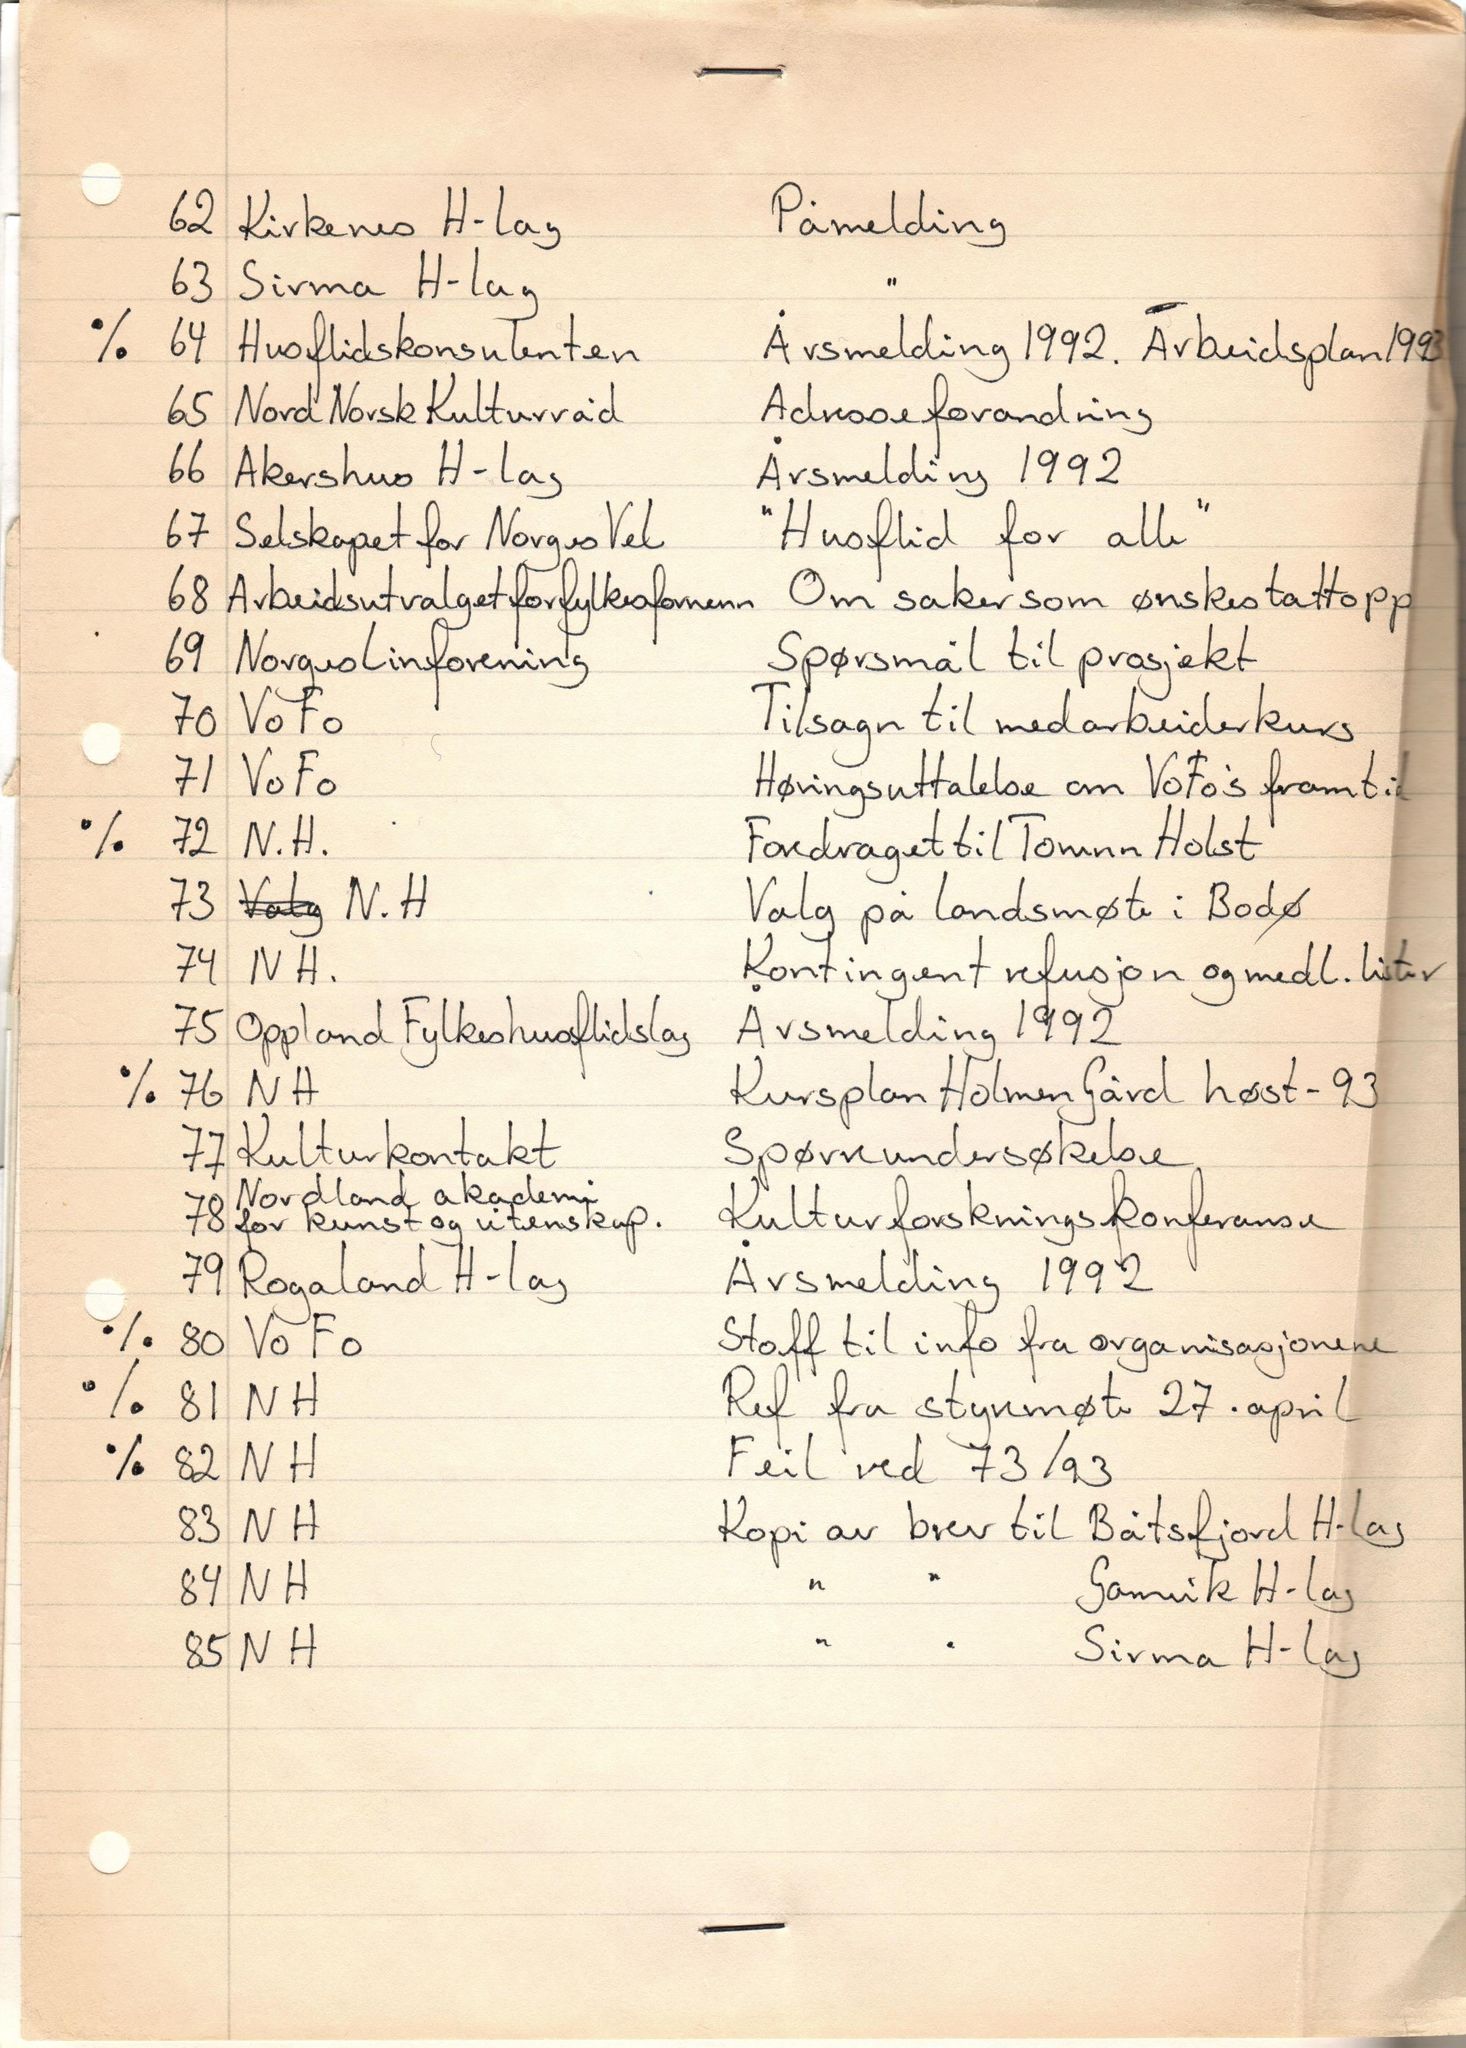 62 Kirkenes H-lag Påmelding
63 Sirma H-lag "
% 64 Husflidskonsulenten Årsmelding 1992. Arbeidsplan 1993
65 Nord Norsk Kulturråd Adresseforandring
66 Akershus H-lag Årsmelding 1992
67 Selskapet for Norges Vel "Husflid for alle"
68 Arbeidsutvalget for fylkesformenn Om saker som ønskes tatt opp
69 Norges Linforening Spørsmål til prosjekt
70 VoFo Tilsagn til medarbeiderkurs
71 VoFo Høringsuttalelse om VoFo's framtid
% 72 N.H. Foredraget til Tomm Holst
73 Valg N.H Valg på landsmøte i Bodø
74 NH. Kontingent refusjon og medl. lister
75 Oppland Fylkeshusflidslag Årsmelding 1992
% 76 NH Kursplan Holmen Gård høst-93
77 Kulturkontakt Spørreundersøkelse
78 Nordland akademi
for kunst og vitenskap. Kulturforskningskonferanse
79 Rogaland H-lag Årsmelding 1992
% 80 VoFo Stoff til info fra organisasjonene
% 81 NH Ref fra styremøte 27. april
% 82 NH Feil ved 73/93
83 NH Kopi av brev til Båtsfjord H-lag
84 NH " " Gamvik H-lag
85 NH " " Sirma H-lag